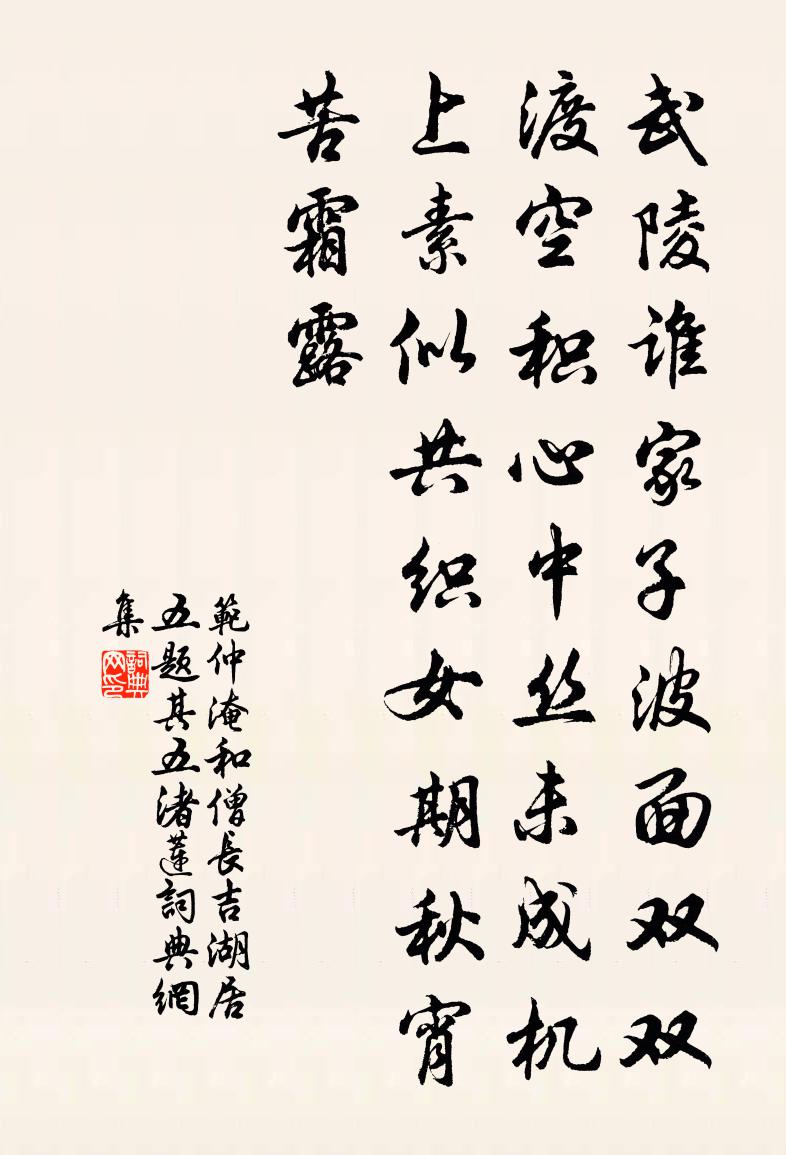 武陵谁家子波面双双
渡空积心中丝未成机
上素似共织女期秋宵
苦霜露
範仲淹和僧長吉湖居
五题其五渚蓮詞典網
集
詞典
网印